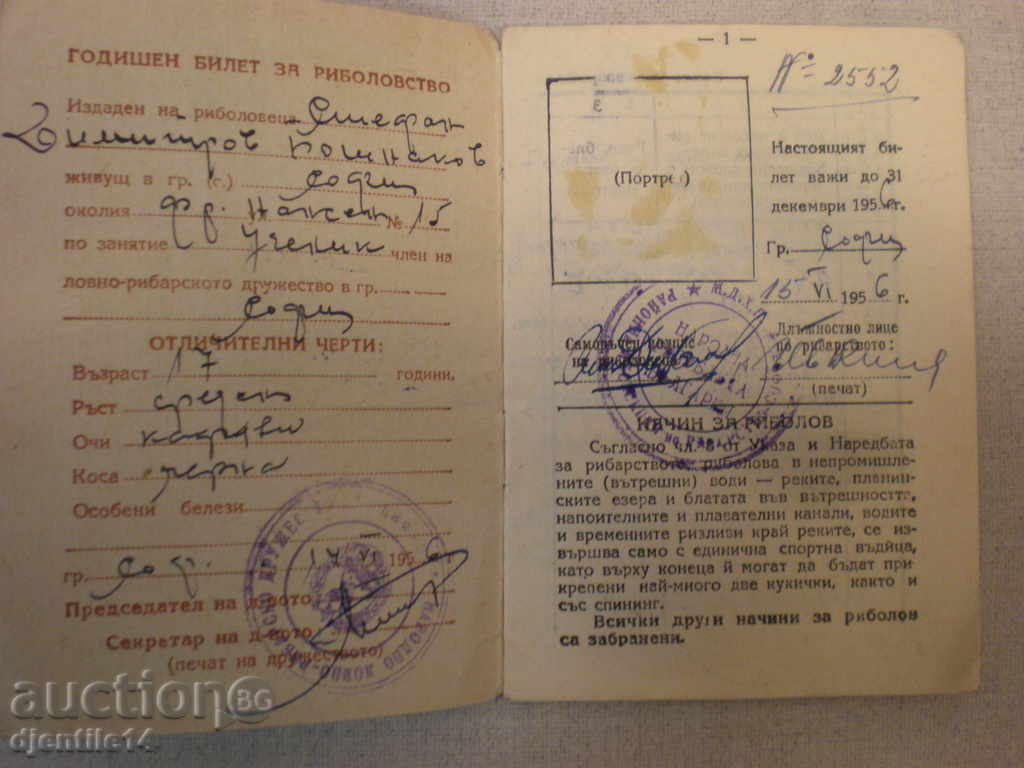 ГОДИШЕН БИЛЕТ ЗА РИБОЛОВСТВО
Издаден на риболовеца Стефан
Димитров
живущ в гр. (с.) София
околия фр. № 15
по занятие ученик член на
ловно-рибарското дружество в гр.
София
ОТЛИЧИТЕЛНИ ЧЕРТИ:
Възраст 17 години.
Ръст среден
Очи кафяви
Коса черна
Особени белези
гр. Соф. VI 1956
Председател на д-вото
Секретар на д-вото
(печат на дружеството)
— 1 —
№ 2552
(Портрет)
Настоящият би-
лет важи до 31
декември 1956 г.
Гр. София
15 VI 1956 г.
Саморъчен подпис
на риболовеца
Длъжностно лице
по рибарството:
(печат)
НАЧИН ЗА РИБОЛОВ
Съгласно чл. 8 от Указа и Наредбата
за рибарството, риболова в непромишле-
ните (вътрешни) води — реките, планин-
ските езера и блатата във вътрешността,
напоителните и плавателни канали, водите
и временните разливи край реките, се из-
вършва само с единична спортна въдица,
като върху конеца й могат да бъдат при-
крепени най-много две кукички, както и
със спининг.
Всички други начини за риболов
са забранени.
auctionBG
djentile14